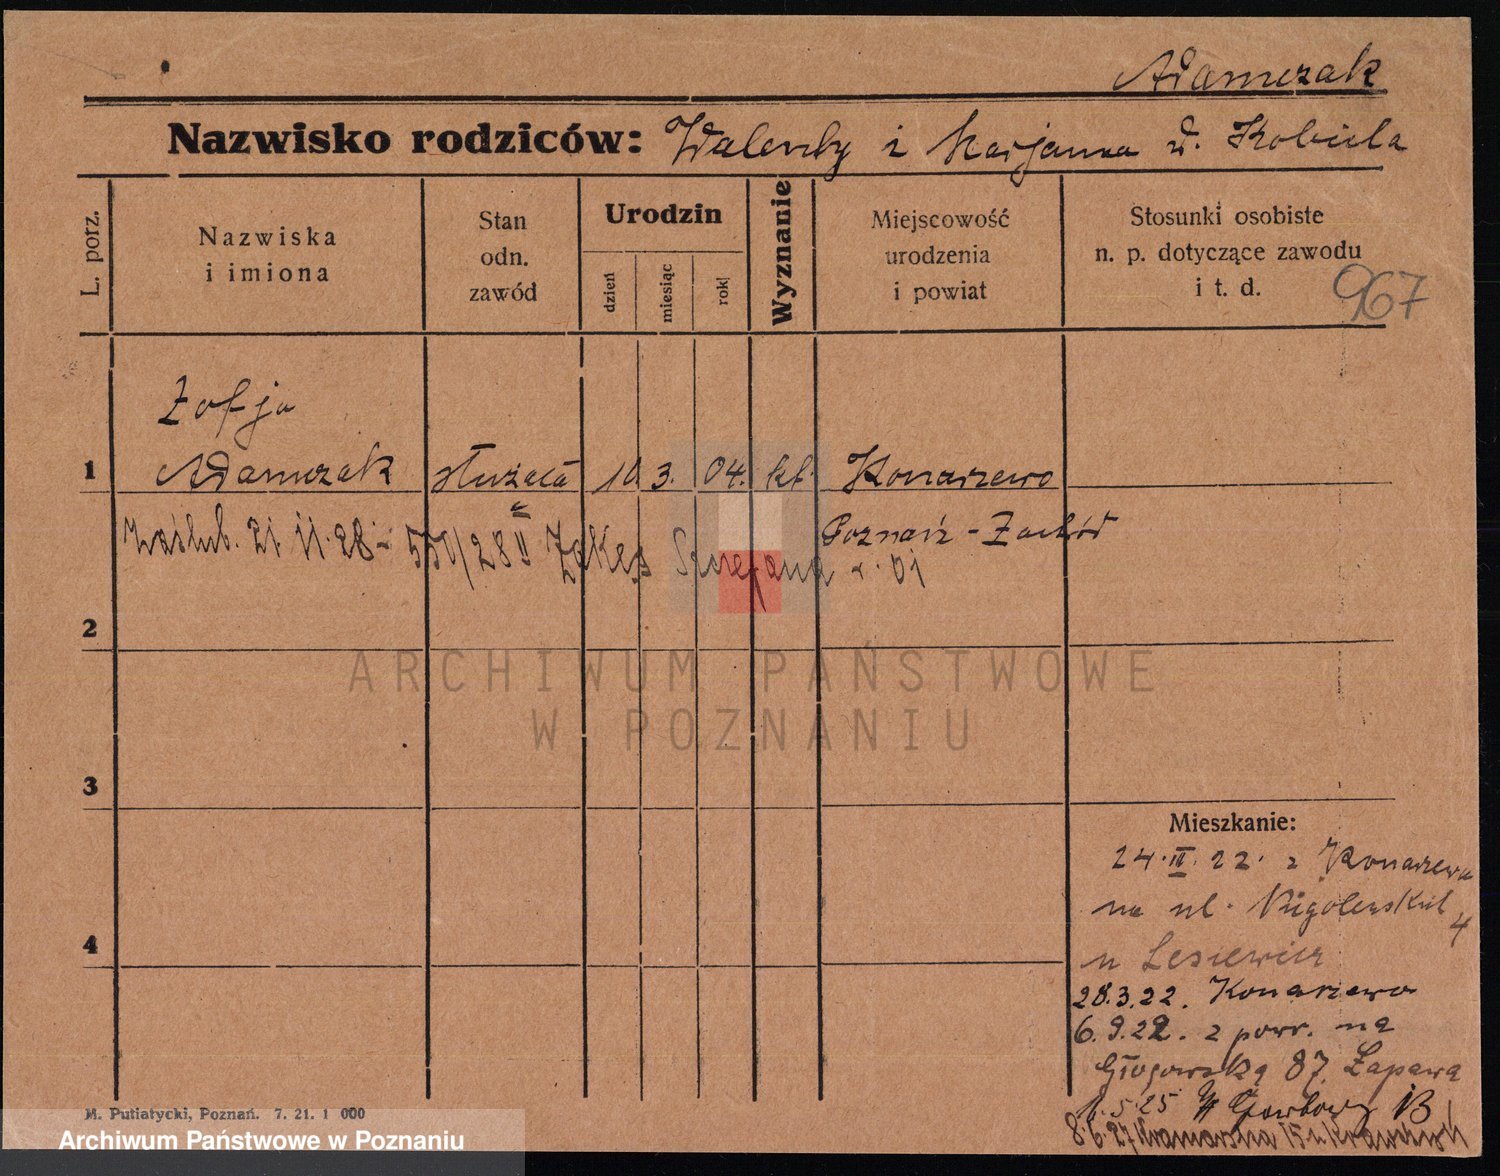 Adamczak
Nazwisko rodziców: Walenty i Marjanna d. Kobiela
L. porz.
Nazwiska
i imiona
Stan
odn.
zawód
Urodzin
dzień
miesiąc
rok
Wyznanie
Miejscowość
urodzenia
i powiat
Stosunki osobiste
n. p. dotyczące zawodu
i t. d.
967
Zofja
1 Adamczak służąca 10. 3. 04. kt. Konarzewo
Poznań-Zachód
Zaślub. 21 11. 28 - 550/28 II Szczepana r. 01
2
3
4
ARCHIWUM PAŃSTWOWE
W POZNANIU
Mieszkanie:
24. II. 22. z Konarzewa
na ul. 4
u Lesiewicz
28.3.22. Konarzewo
6.9.22. z powr. na
Głogowską 87 Łapawa
5.25
8.6.27
M. Putiatycki, Poznań. 7. 21. 1 000
Archiwum Państwowe w Poznaniu